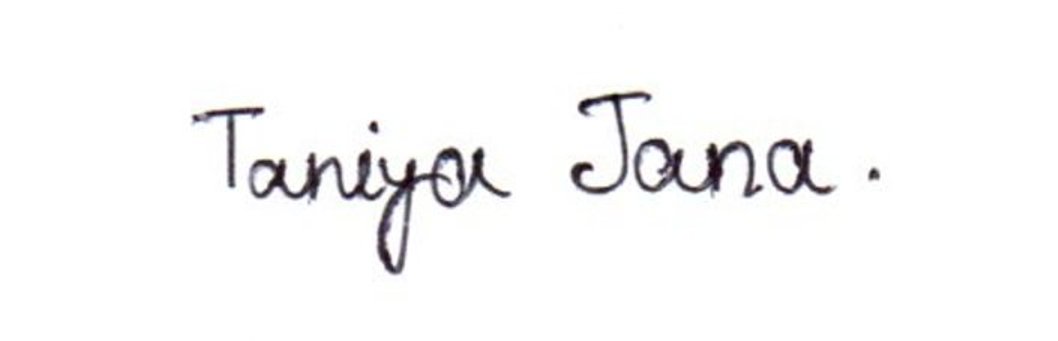 Taniya Jana.